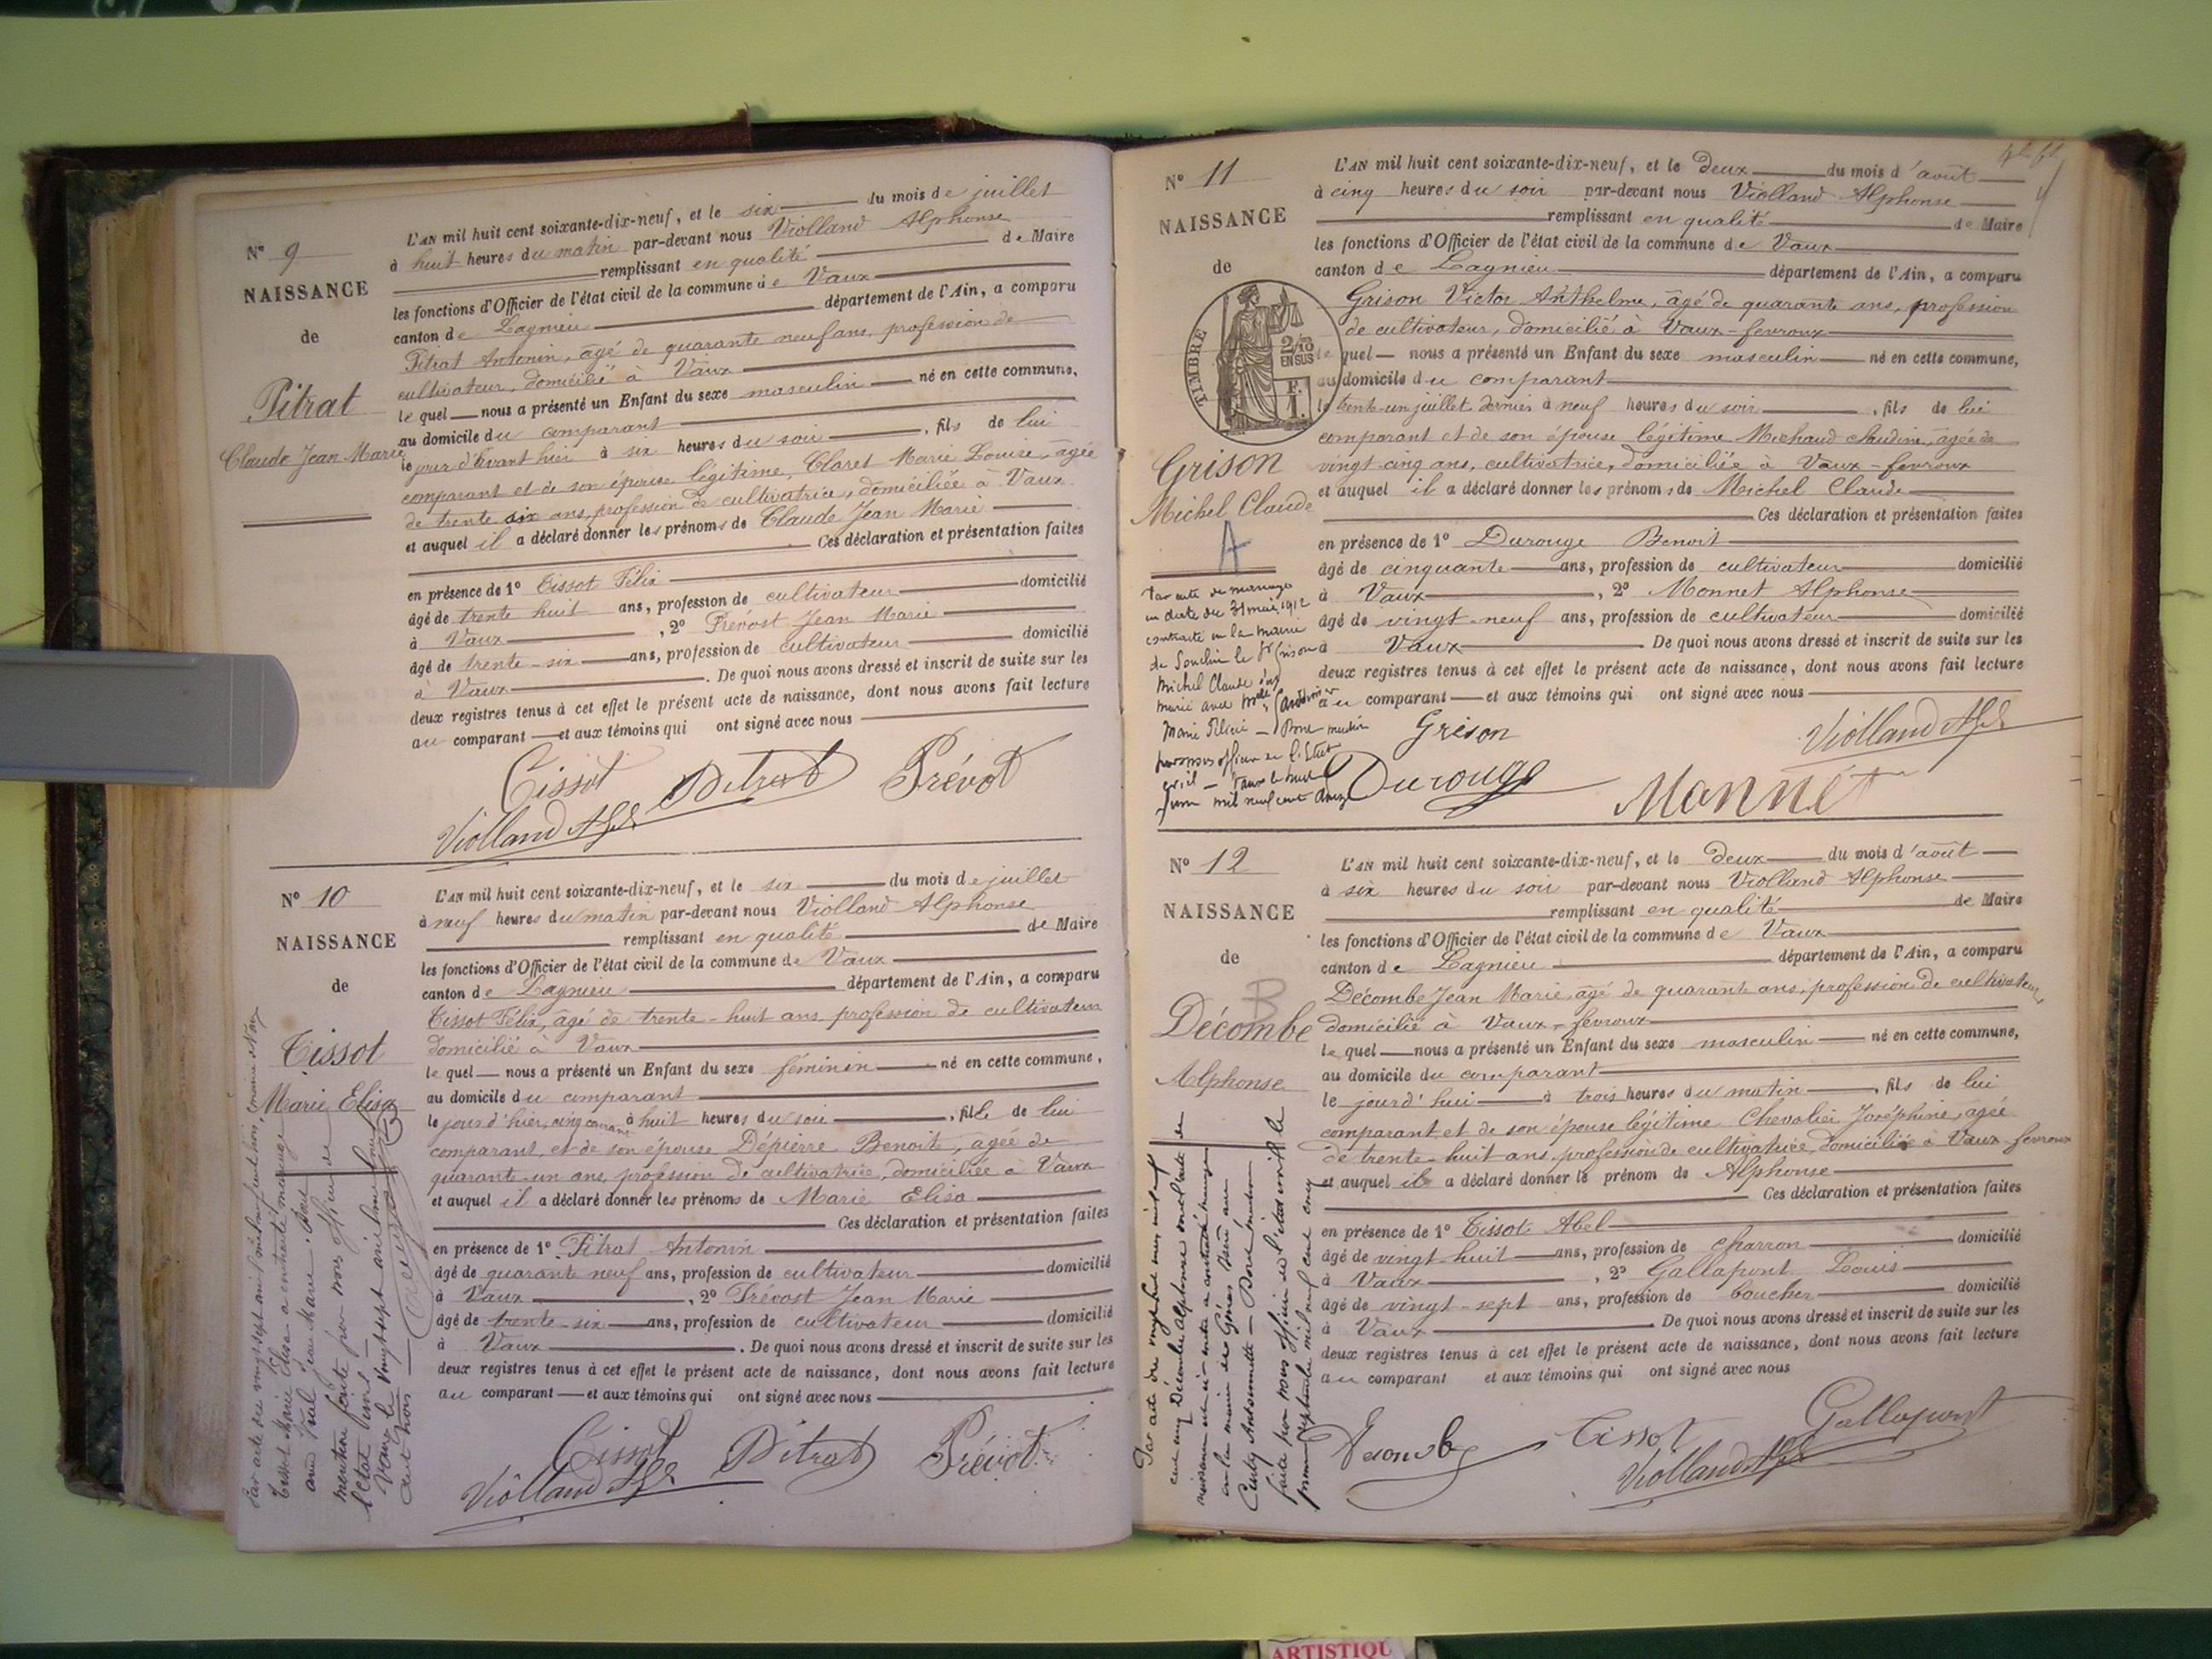 N° 9
NAISSANCE
de
Pitrat
Claude Jean Marie
L'AN mil huit cent soixante-dix-neuf, et le six du mois de juillet
à huit heures du matin par-devant nous Violland Alphonse
remplissant en qualité de Maire
les fonctions d'Officier de l'état civil de la commune de Vaux
canton de Lagnieu département de l'Ain, a comparu
Pitrat Antonin, âgé de quarante neuf ans, profession de
cultivateur, domicilié à Vaux
le quel nous a présenté un Enfant du sexe masculin né en cette commune,
au domicile du comparant
le jour d'avant hier à six heures du soir, fils de lui
comparant et de son épouse légitime, Claret Marie Louise, âgée
de trente six ans, profession de cultivatrice, domiciliée à Vaux
et auquel il a déclaré donner les prénoms de Claude Jean Marie
Ces déclaration et présentation faites
en présence de 1° Tissot Félix
âgé de trente huit ans, profession de cultivateur domicilié
à Vaux, 2° Prévost Jean Marie
âgé de trente-six ans, profession de cultivateur domicilié
à Vaux. De quoi nous avons dressé et inscrit de suite sur les
deux registres tenus à cet effet le présent acte de naissance, dont nous avons fait lecture
au comparant et aux témoins qui ont signé avec nous
Tissot Pitrat Prévot
Violland Alph
N° 10
NAISSANCE
de
Tissot
Marie Elisa
L'AN mil huit cent soixante-dix-neuf, et le six du mois de juillet
à neuf heures du matin par-devant nous Violland Alphonse
remplissant en qualité de Maire
les fonctions d'Officier de l'état civil de la commune de Vaux
canton de Lagnieu département de l'Ain, a comparu
Tissot Félix, âgé de trente-huit ans profession de cultivateur
domicilié à Vaux
le quel nous a présenté un Enfant du sexe féminin né en cette commune,
au domicile du comparant
le jour d'hier, cinq courant à huit heures du soir, fille de lui
comparant, et de son épouse Dépierre Benoite, âgée de
quarante-un ans, profession de cultivatrice, domiciliée à Vaux
et auquel il a déclaré donner les prénoms de Marie Elisa
Ces déclaration et présentation faites
en présence de 1° Pitrat Antonin
âgé de quarante neuf ans, profession de cultivateur domicilié
à Vaux, 2° Prévost Jean Marie
âgé de trente-six ans, profession de cultivateur domicilié
à Vaux. De quoi nous avons dressé et inscrit de suite sur les
deux registres tenus à cet effet le présent acte de naissance, dont nous avons fait lecture
au comparant et aux témoins qui ont signé avec nous
Tissot Pitrat Prévot
Violland Alph
Tissot Marie Elisa a contracté mariage
mention faite par nous officier de
l'état civil
Vaux le vingt sept
N° 11
NAISSANCE
de
TIMBRE
2/10
EN SUS
F.
1.
Grison
Michel Claude
A
L'AN mil huit cent soixante-dix-neuf, et le deux du mois d'août
à cinq heures du soir par-devant nous Violland Alphonse
remplissant en qualité de Maire
les fonctions d'Officier de l'état civil de la commune de Vaux
canton de Lagnieu département de l'Ain, a comparu
Grison Victor Anthelme, âgé de quarante ans, profession
de cultivateur, domicilié à Vaux-fevroux
le quel nous a présenté un Enfant du sexe masculin né en cette commune,
au domicile du comparant
le trente-un juillet dernier à neuf heures du soir, fils de lui
comparant et de son épouse légitime Michaud Claudine, âgée de
vingt-cinq ans, cultivatrice, domiciliée à Vaux-fevroux
et auquel il a déclaré donner les prénoms de Michel Claude
Ces déclaration et présentation faites
en présence de 1° Durouge Benoit
âgé de cinquante ans, profession de cultivateur domicilié
à Vaux, 2° Monnet Alphonse
âgé de vingt-neuf ans, profession de cultivateur domicilié
à Vaux De quoi nous avons dressé et inscrit de suite sur les
deux registres tenus à cet effet le présent acte de naissance, dont nous avons fait lecture
au comparant et aux témoins qui ont signé avec nous
Par acte de mariage
en date du 31 mai 1912
contracté en la mairie
de Souclin le Sr Grison
Michel Claude s'est
marié avec Melle
Marie Félicie - Dont mention
par nous officier de l'Etat
civil - Vaux le huit
juin mil neuf cent douze
Grison
Violland Alph
Durouge
Monnet
N° 12
NAISSANCE
de
B
Décombe
Alphonse
L'AN mil huit cent soixante-dix-neuf, et le deux du mois d'août
à six heures du soir par-devant nous Violland Alphonse
remplissant en qualité de Maire
les fonctions d'Officier de l'état civil de la commune de Vaux
canton de Lagnieu département de l'Ain, a comparu
Décombe Jean Marie, âgé de quarante ans, profession de cultivateur,
domicilié à Vaux-fevroux
le quel nous a présenté un Enfant du sexe masculin né en cette commune,
au domicile du comparant
le jourd'hui à trois heures du matin, fils de lui
comparant, et de son épouse légitime Chevalier Joséphine, âgée
de trente-huit ans, profession de cultivatrice, domiciliée à Vaux-fevroux
et auquel il a déclaré donner le prénom de Alphonse
Ces déclaration et présentation faites
en présence de 1° Tissot Abel
âgé de vingt huit ans, profession de charron domicilié
à Vaux, 2° Gallapont Louis
âgé de vingt-sept ans, profession de boucher domicilié
à Vaux De quoi nous avons dressé et inscrit de suite sur les
deux registres tenus à cet effet le présent acte de naissance, dont nous avons fait lecture
au comparant et aux témoins qui ont signé avec nous
Par acte du vingt huit mai mil neuf
cent cinq Décombe Alphonse
a contracté mariage
en la mairie de
Curty Antoinette - Dont mention
faite par nous officier de l'état civil le
premier septembre mil neuf cent cinq
Decombe Tissot Gallapont
Violland Alph
ARTISTIQU